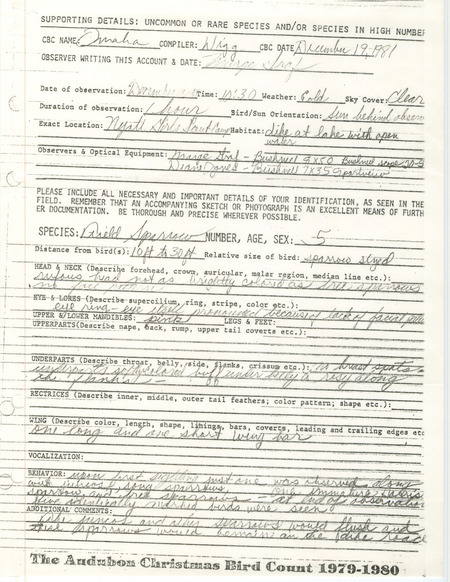 SUPPORTING DETAILS: UNCOMMON OR RARE SPECIES AND/OR SPECIES IN HIGH NUMBER
CBC NAME: Omaha COMPILER: Wigg CBC DATE December 19, 1981
OBSERVER WRITING THIS ACCOUNT & DATE:
Date of observation: December Time: 10:30 Weather: Cold Sky Cover: Clear
Duration of observation: 1 hour Bird/Sun Orientation: sun behind observer
Exact Location: Girls Scout Camp Habitat: dike at lake with open
water
Observers & Optical Equipment: - Bushnell Bushnell scope
- Bushnell 7x35 Sportview
PLEASE INCLUDE ALL NECESSARY AND IMPORTANT DETAILS OF YOUR IDENTIFICATION, AS SEEN IN THE
FIELD. REMEMBER THAT AN ACCOMPANYING SKETCH OR PHOTOGRAPH IS AN EXCELLENT MEANS OF FURTH
ER DOCUMENTATION. BE THOROUGH AND PRECISE WHEREVER POSSIBLE.
SPECIES: Field Sparrow NUMBER, AGE, SEX: 5
Distance from bird(s): 10 ft to 30 ft Relative size of bird: sparrow sized
HEAD & NECK (Describe forehead, crown, auricular, malar region, median line etc.):
rufous head not as brightly colored as tree sparrows
no
EYE & LORES (Describe supercilium, ring, stripe, color etc.):
eye ring - eye itself pronounced because of lack of facial
UPPER &/LOWER MANDIBLES: pink LEGS & FEET:
UPPERPARTS(Describe nape, back, rump, upper tail coverts etc.):
UNDERPARTS (Describe throat, belly, side, flanks, crissum etc.): no breast spots
underparts soft colored buff under belly & rosy along
the flanks -
RECTRICES (Describe inner, middle, outer tail feathers; color pattern; shape etc.):
WING (Describe color, length, shape, lining, bars, coverts, leading and trailing edges etc
one long and one short wing bar
VOCALIZATION:
BEHAVIOR: upon first just one was observed along
with juncos, song sparrows, one immature Harris
sparrow, and tree sparrows - at end of observation
five identically marked birds were seen
ADDITIONAL COMMENTS:
The juncos and other sparrows would flush and
these sparrows would remain on the dike road
The Audubon Christmas Bird Count 1979-1980